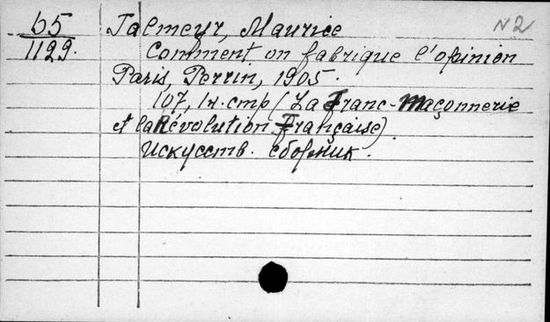 65
1129.
Talmeyr, Maurice
N2
Comment on fabrique l'opinion
Paris, Perrin, 1905.
107, 1н. стр (La Franc-Maçonnerie
et la Révolution Française)
Искусств. сборник.